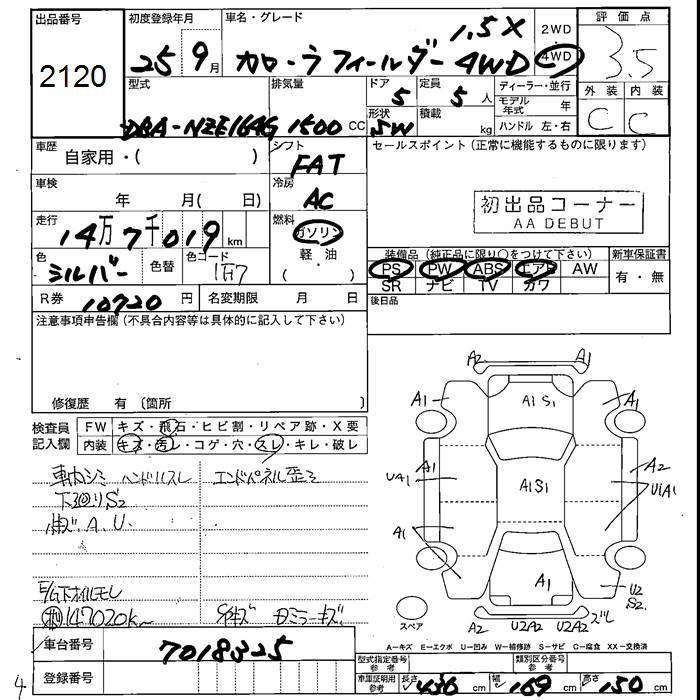 出品番号 初度登録年月 車名・グレード 評価点
2120 25 9月 カローラフィールダー 1.5X 4WD 2WD・4WD 3.5
外装 内装
C C
型式 排気量 ドア 定員 ディーラー・並行
DBA-NZE164G 1500 CC 5 5人 モデル年式 年
形状 積載 ハンドル 左・右
SW kg
車歴 自家用・( ) シフト FAT セールスポイント(正常に機能するものに限ります)
車検 年 月( 日) 冷房 AC
初出品コーナー
AA DEBUT
走行 14万7千019 km 燃料 ガソリン 軽・油
色 シルバー 色替 色コード 1F7
装備品(純正品に限り○をつけて下さい) 新車保証書
PS PW ABS エアB AW 有・無
SR ナビ TV カワ
R券 10720 円 名変期限 月 日 後日品
注意事項申告欄(不具合内容等は具体的に記入して下さい)
修復歴 有(箇所 )
検査員記入欄 FW キズ・飛石・ヒビ割・リペア跡・X要
内装 キズ・汚レ・コゲ・穴・スレ・キレ・破レ
車内シミ ハンドルスレ エンドパネル歪ミ
下廻りS2
A.U.
E/G下オイルモレ
147020km
A2 A1
A1 A1S1 A1
A1 A2
UA1 A1S1 U1A1
A1
A1 U2
S2
A2 U2A2 U2A2 ズレ
スペア
A−キズ E−エクボ U−凹み W−補修跡 S−サビ C−腐食 XX−交換済
車台番号 7018325
登録番号
型式指定番号 参考 類別区分番号 参考
車庫証明用参考 長さ 436 cm 幅 169 cm 高さ 150 cm
4